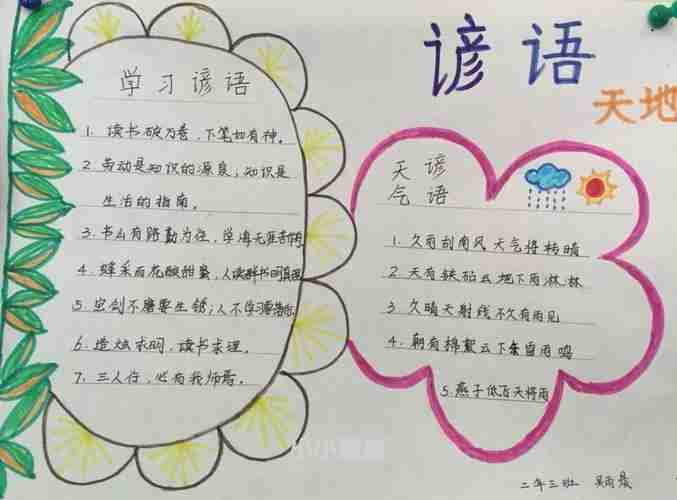 谚语
天地
学习谚语
1. 读书破万卷，下笔如有神。
2. 劳动是知识的源泉，知识是
生活的指南。
3. 书山有路勤为径，学海无涯苦作舟
4. 蜂采百花酿甜蜜，人读群书明真理
5. 宝剑不磨要生锈；人不学习要落后
6. 造烛求明，读书求理。
7. 三人行，必有我师焉。
天谚
气语
1. 久雨刮南风 天气将转晴
2. 天有铁砧云 地下雨淋淋
3. 久晴天射线 不久有雨见
4. 朝有棉絮云 下午雷雨鸣
5. 燕子低飞天将雨
二年三班